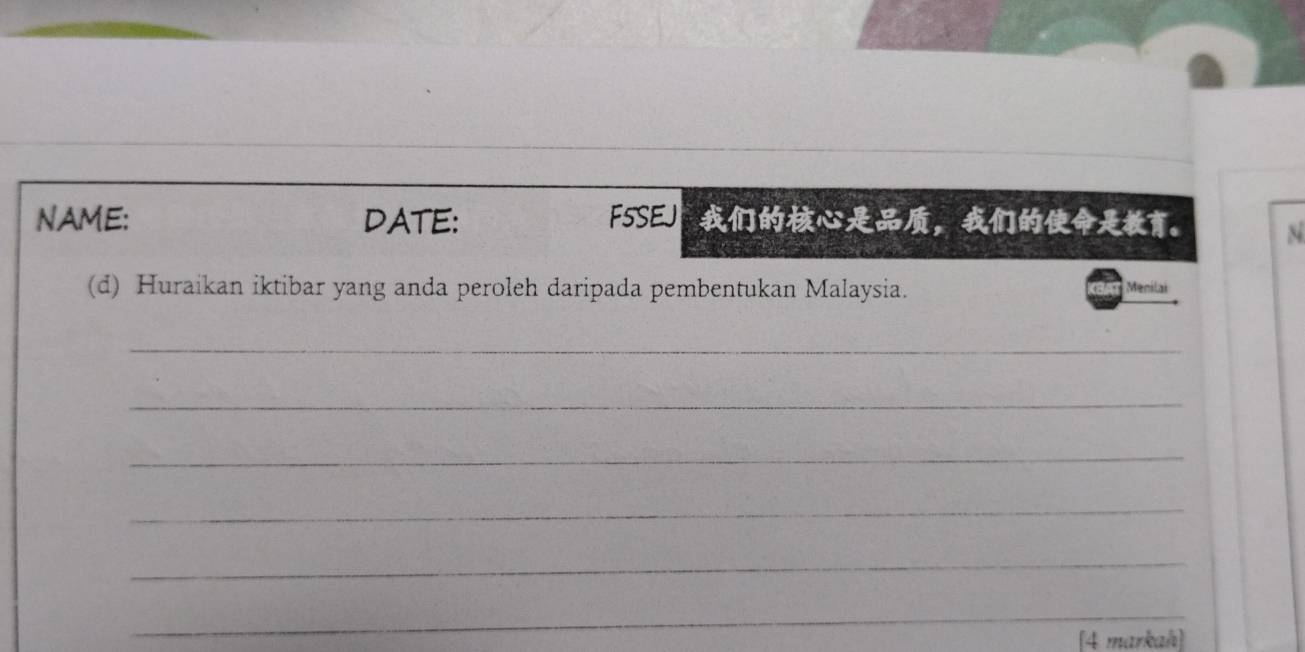 NAME: DATE: F5SEJ 我们的核心是品质，我们的使命是教育。
N
(d) Huraikan iktibar yang anda peroleh daripada pembentukan Malaysia. KBAT Menilai
[4 markah]